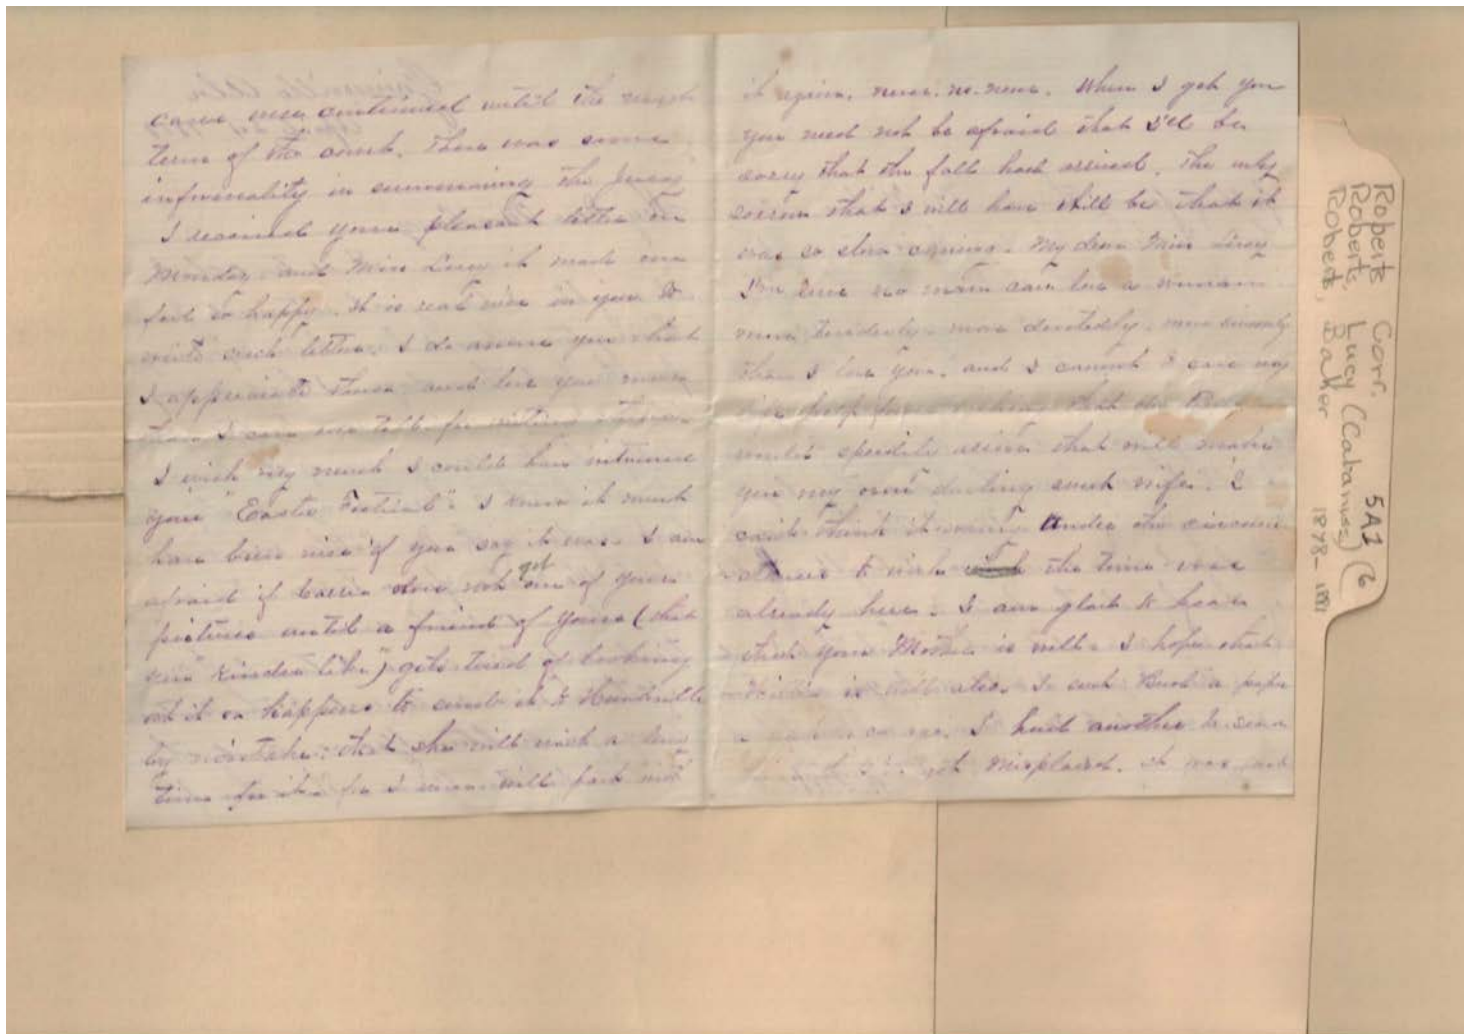 cases were continued until the next
term of the court. There was some
informality in summoning the jury
I received your pleasant letter on
Monday and Miss Lucy it made me
feel so happy. It is real nice in you to
write such letters. I do assure you that
I appreciate them and love you more
than I can ever tell
I wish very much I could have
your "Easter Festival". I know it must
have been nice if you say it was. I am
afraid if Carrie does not get one of your
pictures until a friend of yours (that
"kinder like") gets tired of looking
at it or happens to send it to Huntsville
by mistake: that she will wait a long
time for it for I never will part with
it again, never. no. never. When I get you
you need not be afraid that I'll be
sorry that the fall has arrived. The only
sorrow that I will have will be that it
was so slow coming. My dear Miss Lucy
I'm sure no man can love a woman
more tenderly - more devotedly. more sincerely
than I love you. and I cannot
that
that will make
you my own darling sweet wife. I
can't think it wrong under the circum
stances to wish the time was
already here. I am glad to hear
that your Mother is well. I hope that
is well also. I sent a paper
I had another to send
got misplaced. it was
Roberts Corr. 5A1
Roberts, Lucy (Cabaniss) (6
Roberts, Baker 1878-1881